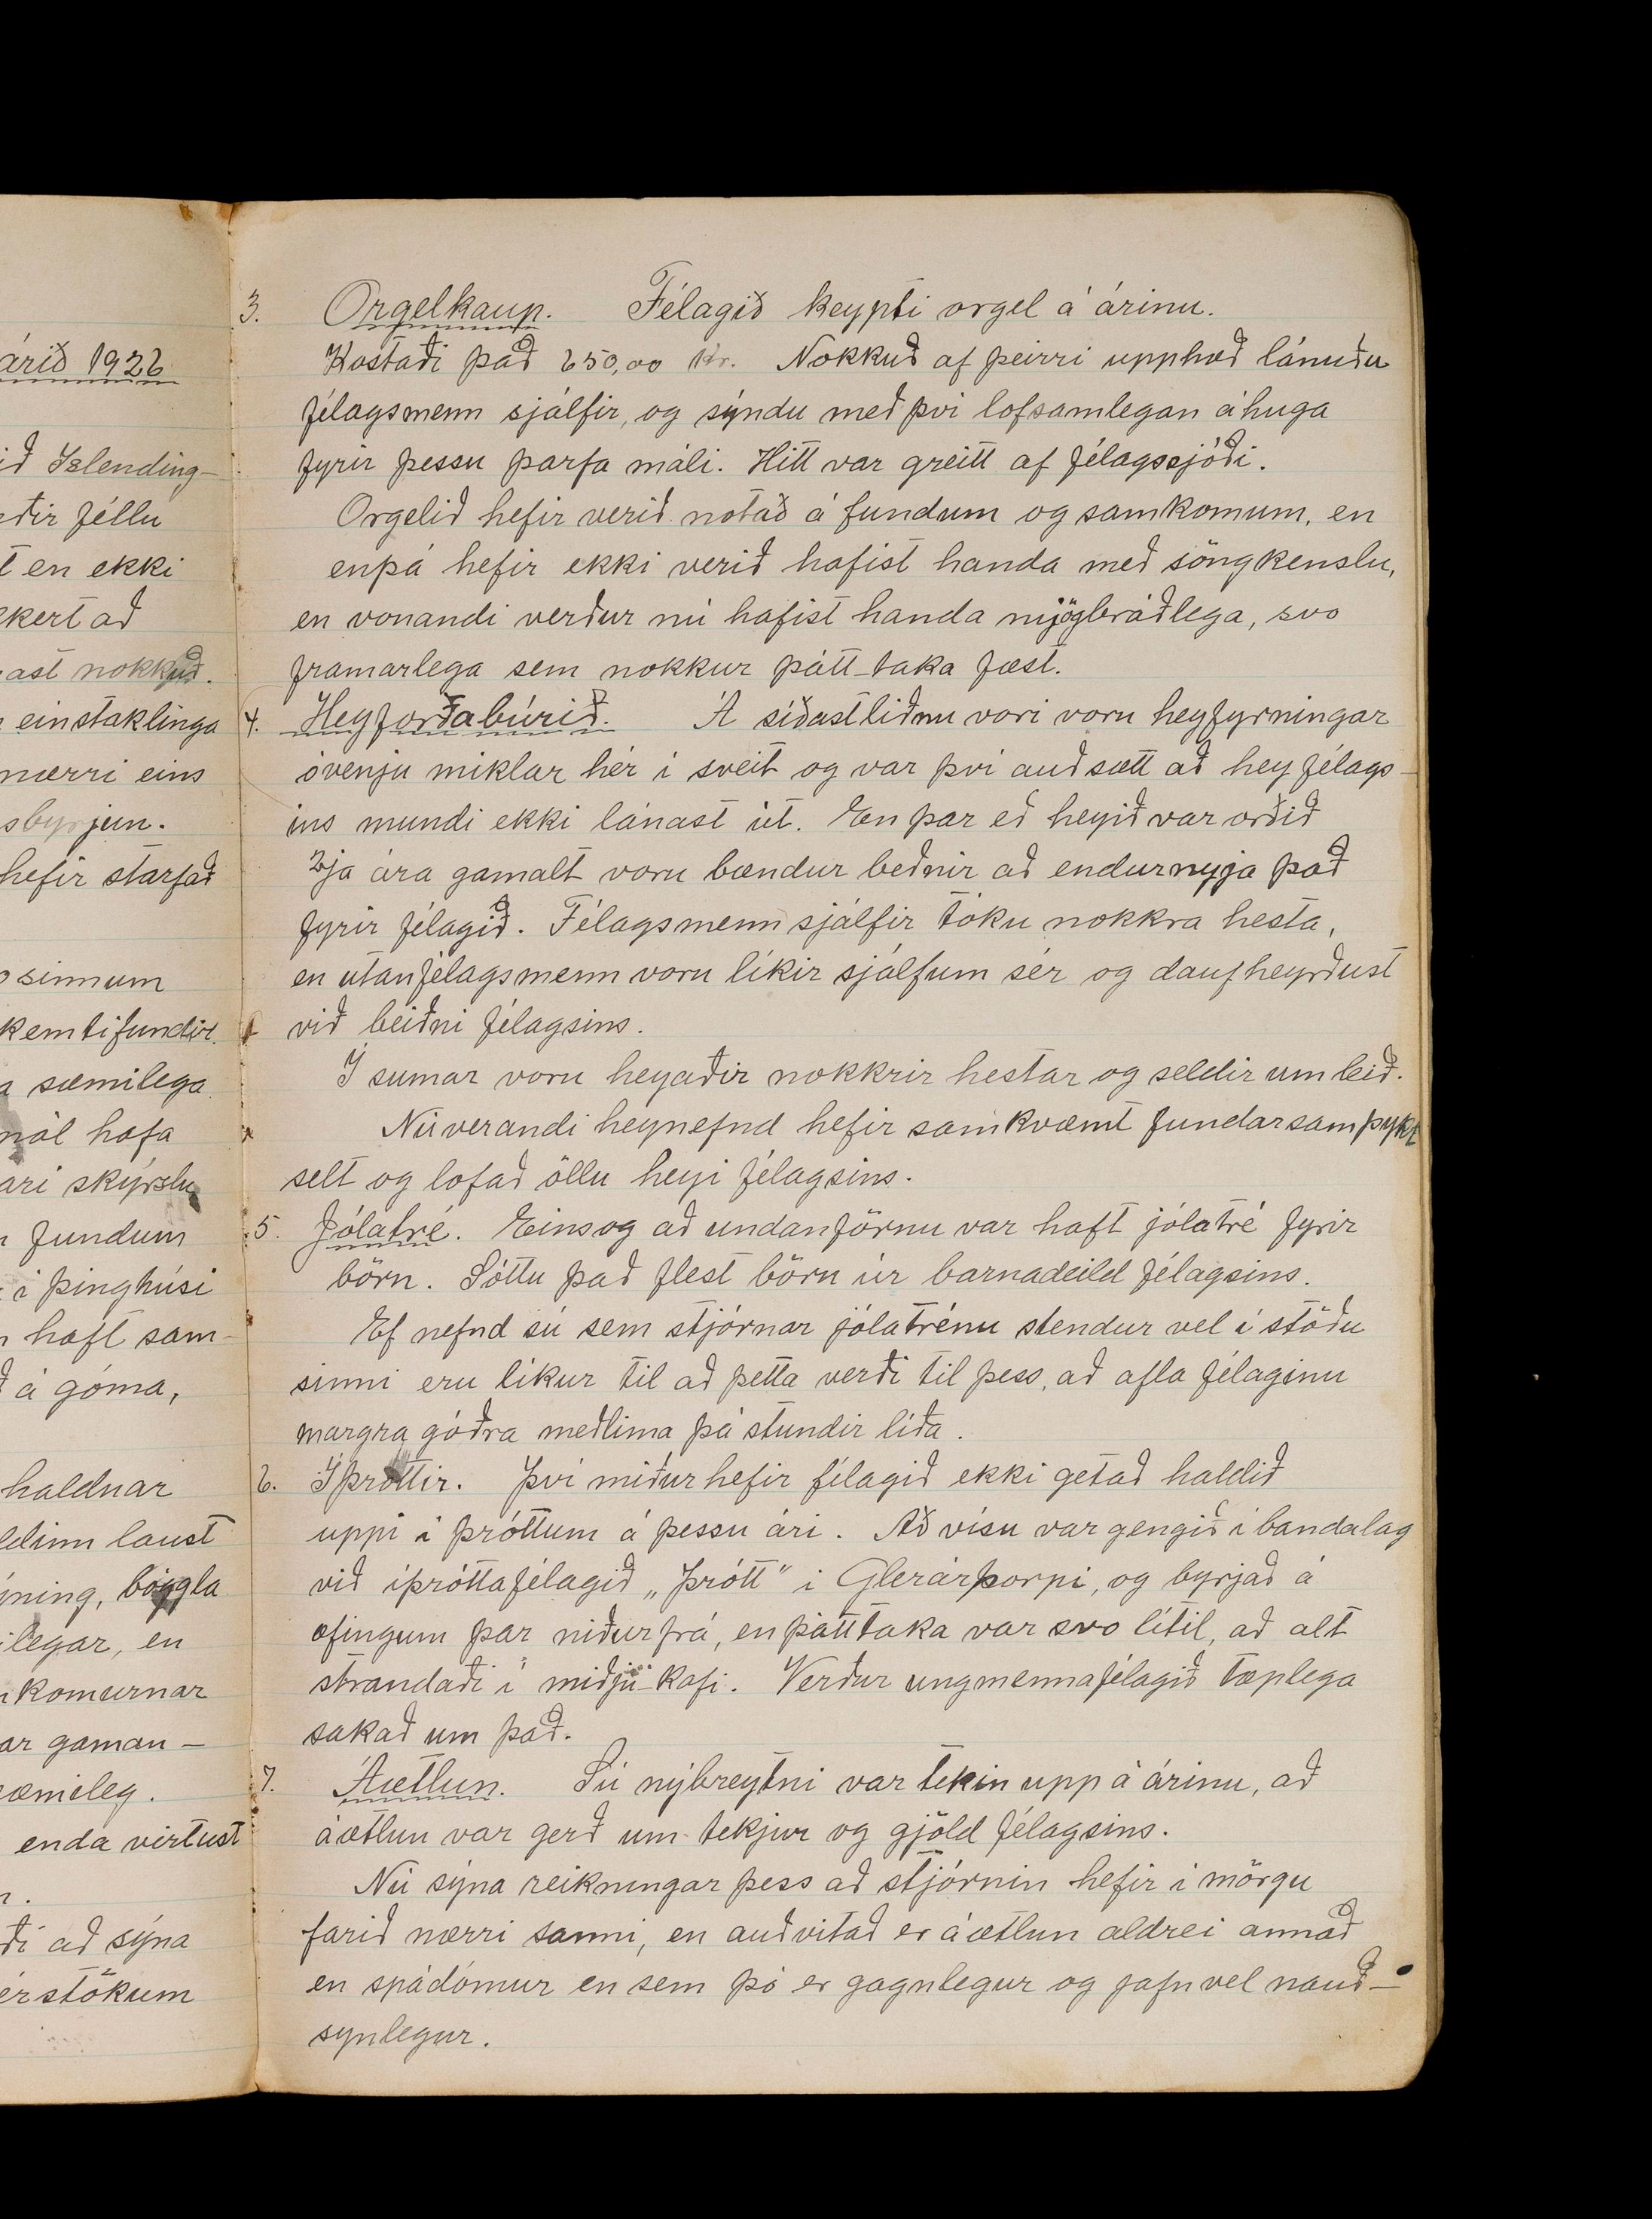 árið 1926
ið Íslending-
ðir féllu
t en ekki
kert að
ast nokkuð.
einstaklinga
nærri eins
sbyrjun.
hefir starfað
sinnum
kemtifundir.
sæmilega
mál hafa
ari skýrslu
fundum
í þinghúsi
haft sam-
á góma,
haldnar
ldinn laust
ning, böggla
legar, en
komurnar
ar gaman-
sæmileg.
enda virtust
ði að sýna
érstökum
3. Orgelkaup. Félagið keypti orgel á árinu.
Kostaði það 650,00 kr. Nokkuð af þeirri upphæð lánuðu
félagsmenn sjálfir, og sýndu með því lofsamlegan áhuga
fyrir þessu þarfa máli. Hitt var greitt af félagssjóði.
Orgelið hefir verið notað á fundum og samkomum, en
enþá hefir ekki verið hafist handa með söngkenslu,
en vonandi verður nú hafist handa mjög bráðlega, svo
framarlega sem nokkur þátt-taka fæst.
4. Heyforðabúrið. Á síðastliðnu vori voru heyfyrningar
óvenju miklar hér í sveit og var því auðsætt að hey félags-
ins mundi ekki lánast út. En þar eð heyið var orðið
3ja ára gamalt voru bændur beðnir að endurnyja það
fyrir félagið. Félagsmenn sjálfir tóku nokkra hesta,
en utanfélagsmenn voru líkir sjálfum sér og daufheyrðust
við beiðni félagsins.
Í sumar voru heyaðir nokkrir hestar og seldir um leið.
Núverandi heynefnd hefir samkvæmt fundarsamþykt
selt og lofað öllu heyi félagsins.
5. Jólatré. Eins og að undanförnu var haft jólatré fyrir
börn. Sóttu það flest börn úr barnadeild félagsins.
Ef nefnd sú sem stjórnar jólatrénu stendur vel í stöðu
sinni eru líkur til að þetta verði til þess, að afla félaginu
margra góðra meðlima þá stundir líða.
6. Íþróttir. Því miður hefir félagið ekki getað haldið
uppi í þróttum á þessu ári. Að vísu var gengið í bandalag
við íþróttafélagið „Þrótt" í Glerárþorpi, og byrjað á
æfingum þar niðurfrá, en þátttaka var svo lítil, að alt
strandaði í miðju-kafi. Verður ungmennafélagið tæplega
sakað um það.
7. Áætlun. Sú nýbreytni var tekin upp á árinu, að
áætlun var gerð um tekjur og gjöld félagsins.
Nú sýna reikningar þess að stjórnin hefir í mörgu
farið nærri sanni, en auðvitað er áætlun aldrei annað
en spádómur en sem þó er gagnlegur og jafnvel nauð-
synlegur.